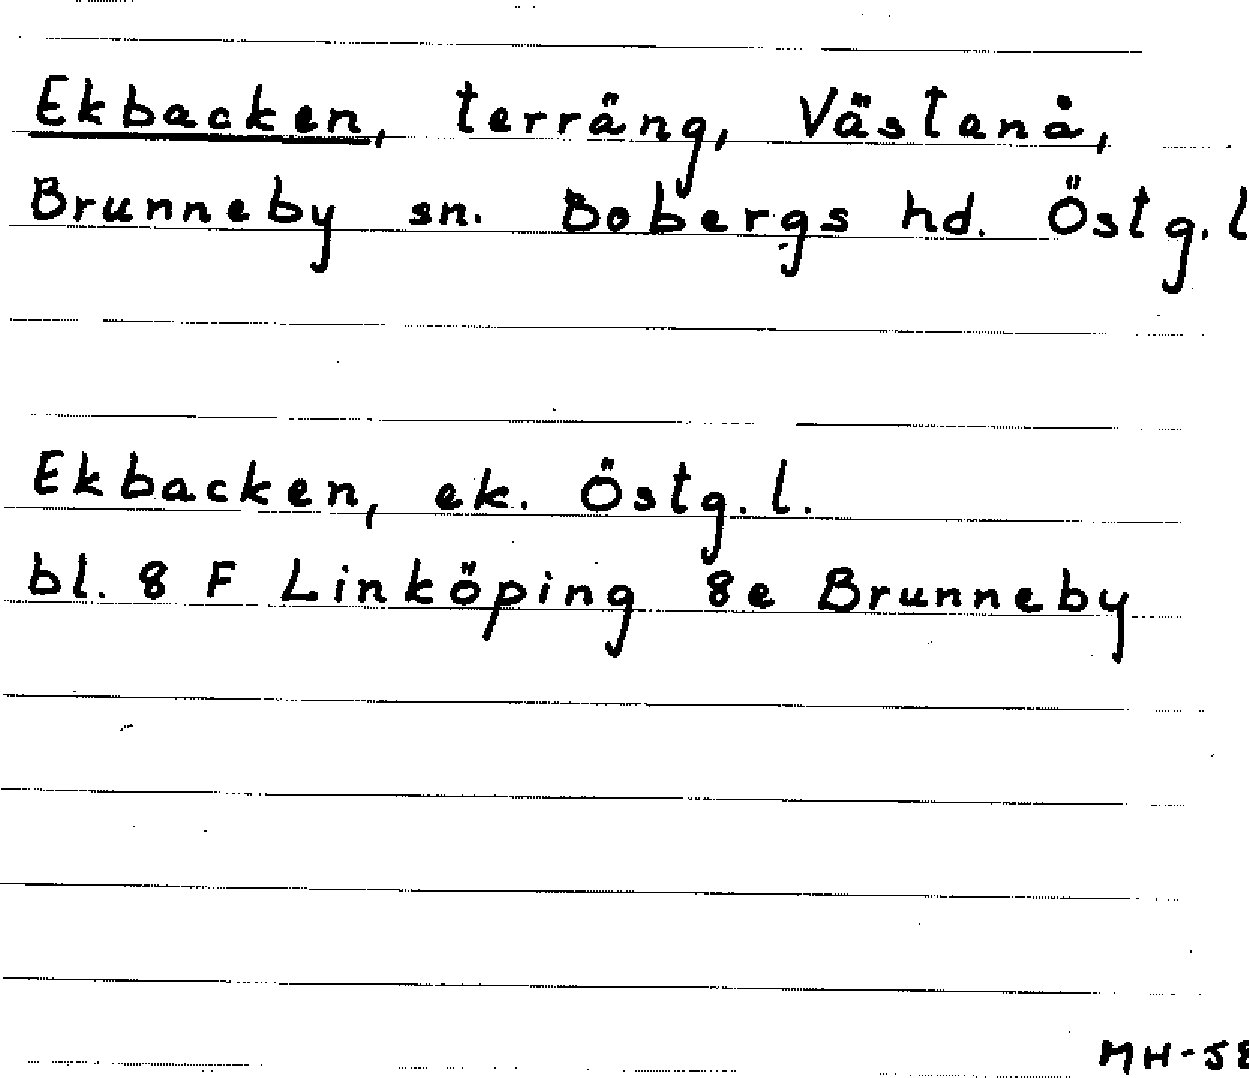 Ekbacken, terräng, Västanå,
Brunneby sn. Bobergs hd. Östg. l
Ekbacken, ek. Östg. l.
bl. 8 F Linköping 8e Brunneby
MH-58